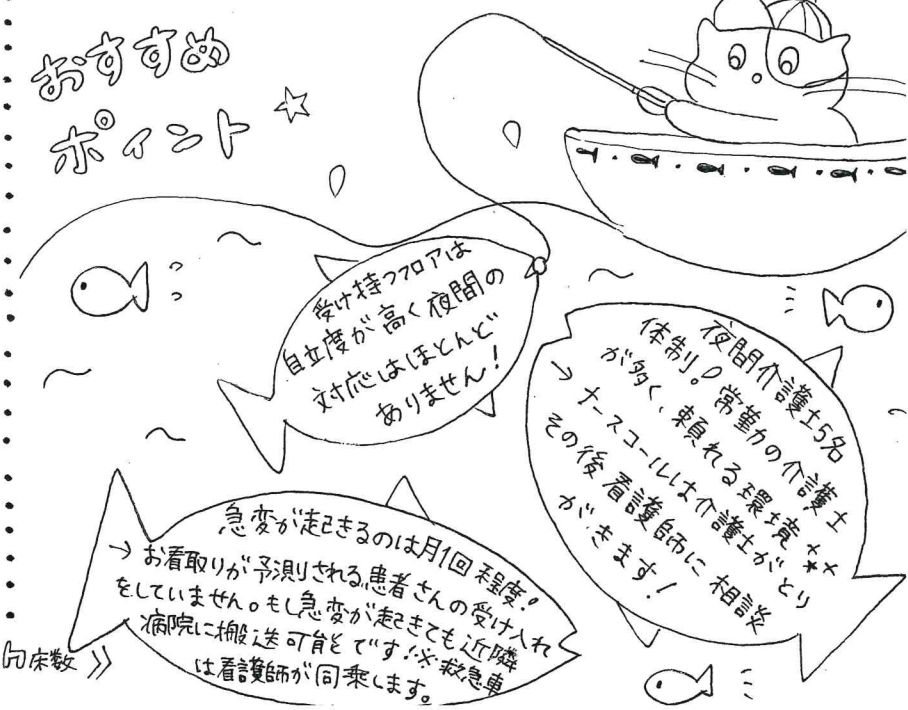 おすすめ
ポイント
受け持つフロアは
自立度が高く夜間の
対応はほとんど
ありません！
夜間介護士5名
体制！常勤の介護士
が多く、頼れる環境
→ナースコールは介護士がとり
その後看護師に相談
がきます！
急変が起きるのは月1回程度！
→お看取りが予測される患者さんの受け入れ
をしていません。もし急変が起きても近隣
病院に搬送可能です！※救急車
は看護師が同乗します。
床数》